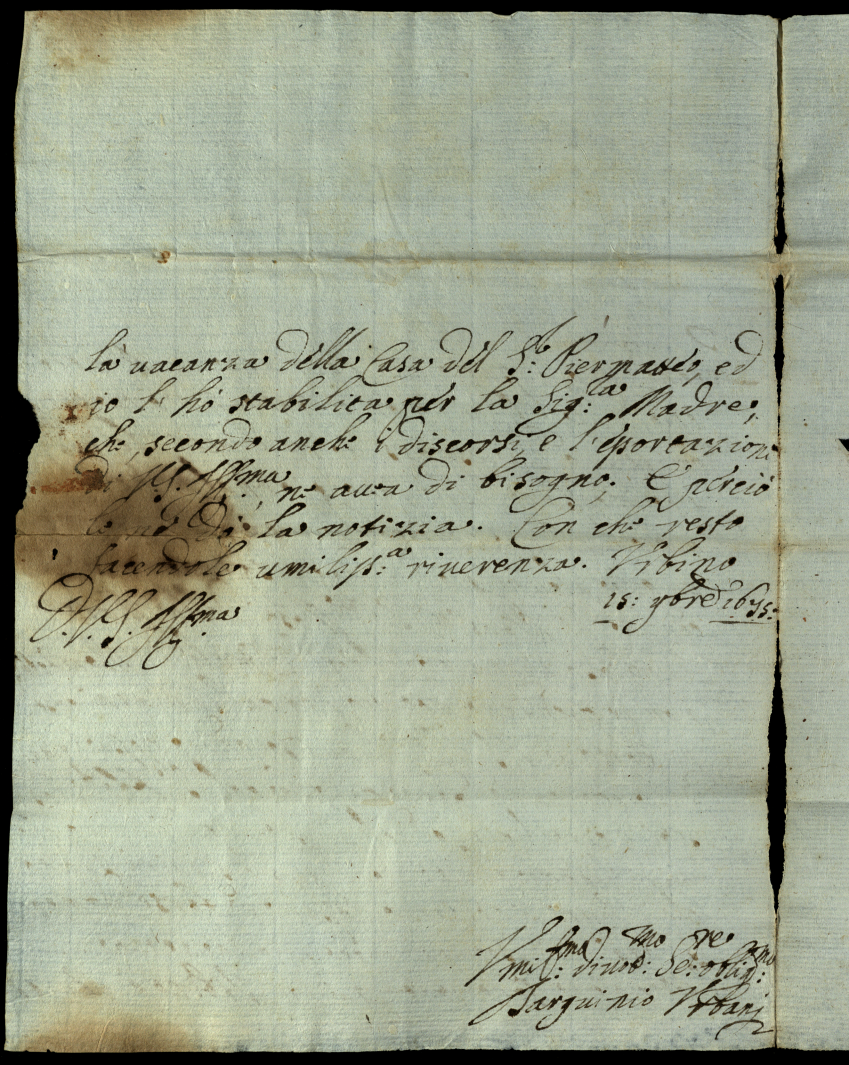 la vacanza della Casa del S.r Piermatteo, ed
io l'hò stabilita per la Sig.ra Madre,
che, secondo anche i discorsi, e l'esportazioni
di V.S. Ill.ma, ne avea di bisogno; E perciò
le ne dò la notizia. Con che resto
facendole umiliss.a riverenza. Vrbino
15: 9bre 1695:
D. V. S. Ill.ma
Vmil.mo divot.mo Se.re obblig.mo
Tarquinio Vrbani